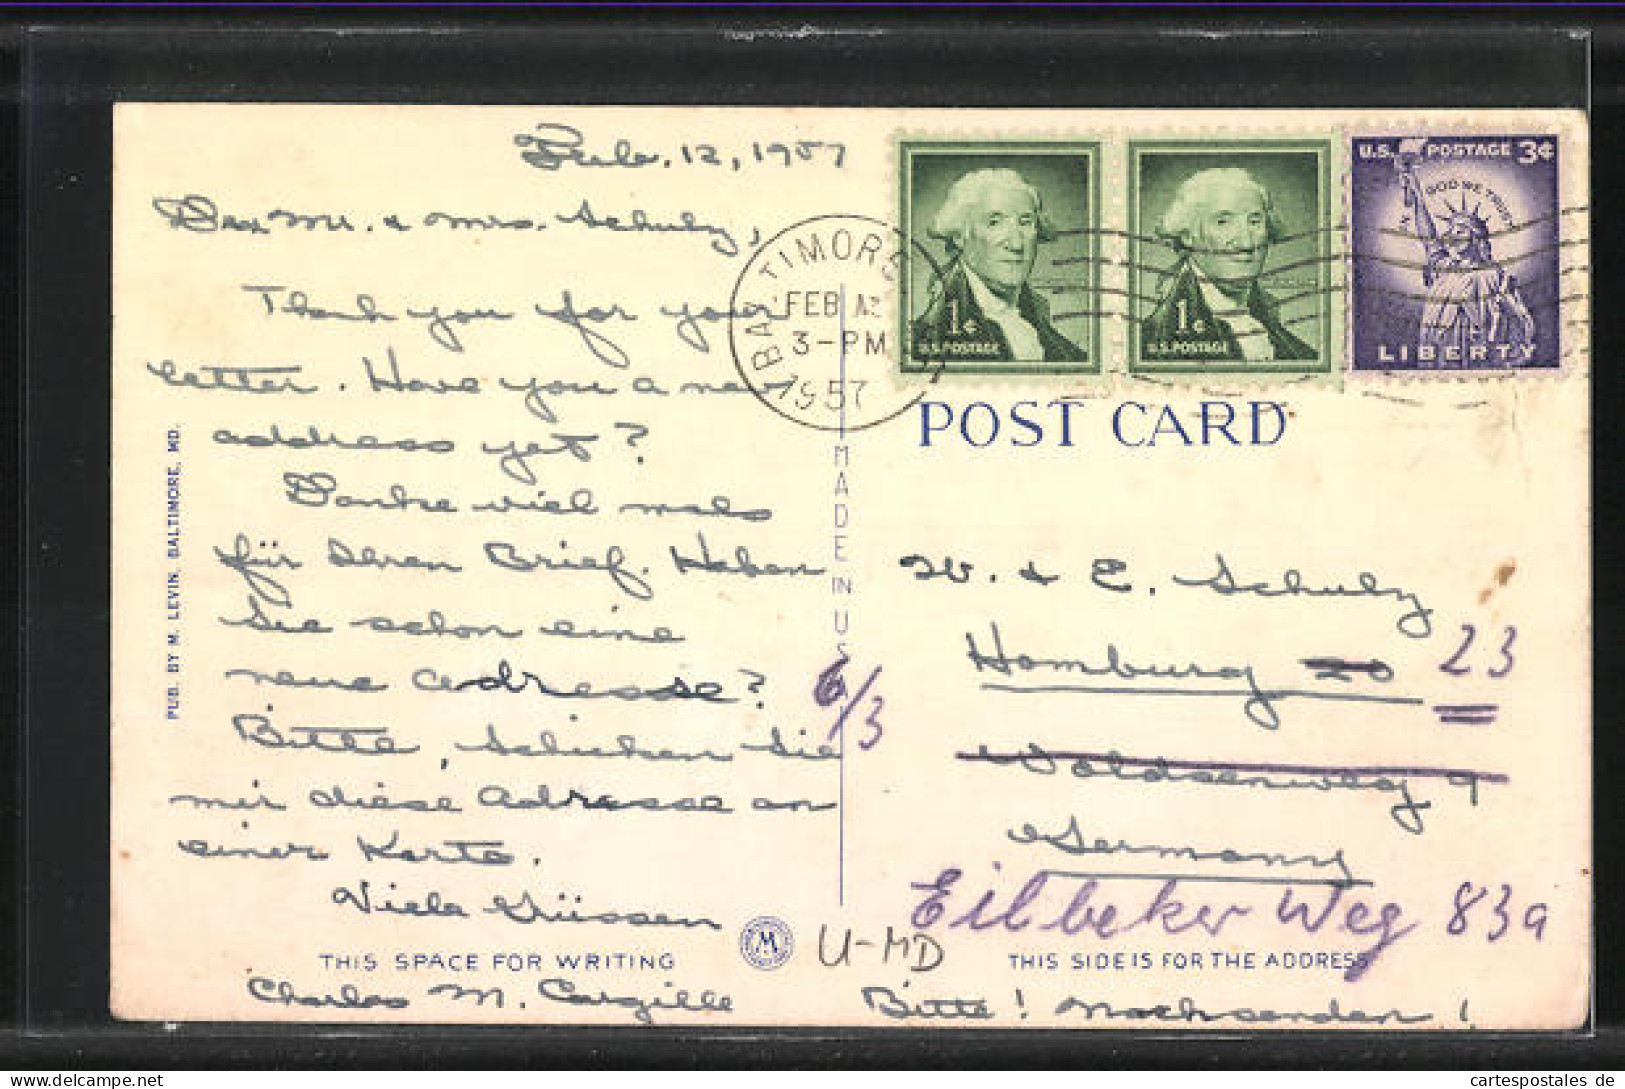 Feb. 12, 1957
Dear Mr. & Mrs. Schulz,
Thank you for your
letter. Have you a new
address yet?
Danke viel mals
für Ihren Brief. Haben
Sie schon eine
neue Adresse?
Bitte, schicken Sie
mir diese Adresse an
einer Karte.
Viele Grüssen
THIS SPACE FOR WRITING
Charles M. Cargille
PUB. BY M. LEVIN, BALTIMORE, MD.
MADE IN U S
6/3
M
U-MD
BALTIMORE
FEB
3-PM
1957
1¢
U.S. POSTAGE
1¢
U.S. POSTAGE
U.S. POSTAGE 3¢
IN GOD WE TRUST
LIBERTY
POST CARD
W. & E. Schulz
Hamburg 20 23
Woldsenweg 9
Germany
Eilbeker Weg 83a
THIS SIDE IS FOR THE ADDRESS
Bitte! Nachsenden!
cartespostales de